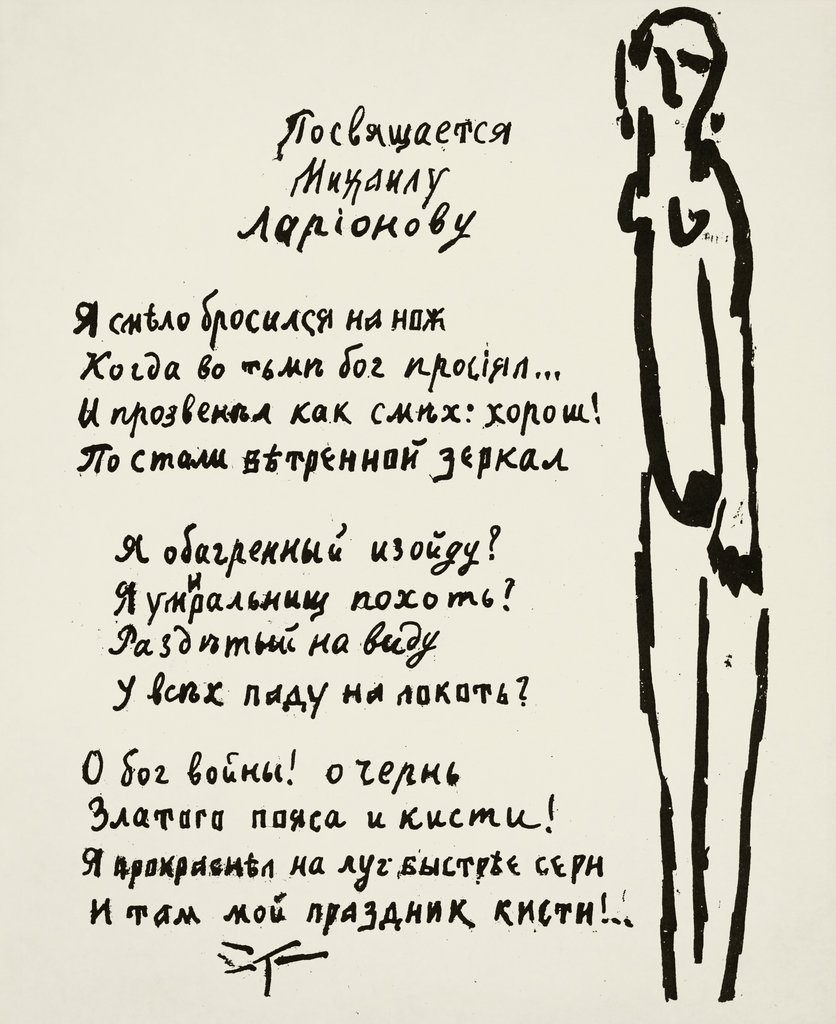 Посвящается
Михаилу
Ларіонову
Я смѣло бросился на нож
Когда во тьмѣ бог просіял...
И прозвенѣл как смѣх: хорош!
По стали вѣтренной зеркал
Я обагренный изойду?
Я умиральнищ похоть?
Раздѣтый на виду
У всѣх паду на локоть?
О бог войны! о чернь
Златого пояса и кисти!
Я на луг быстрѣе серн
И там мой праздник кисти!..